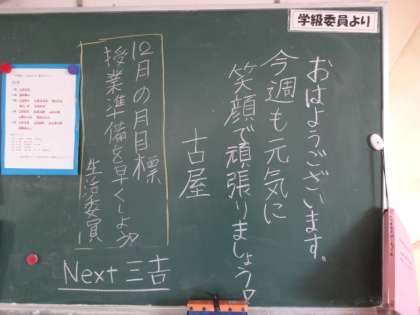 学級委員より
おはようございます。
今週も元気に
笑顔で頑張りましょう!
古屋
12月の月目標
授業準備を早くしよう
生活委員
Next 三吉